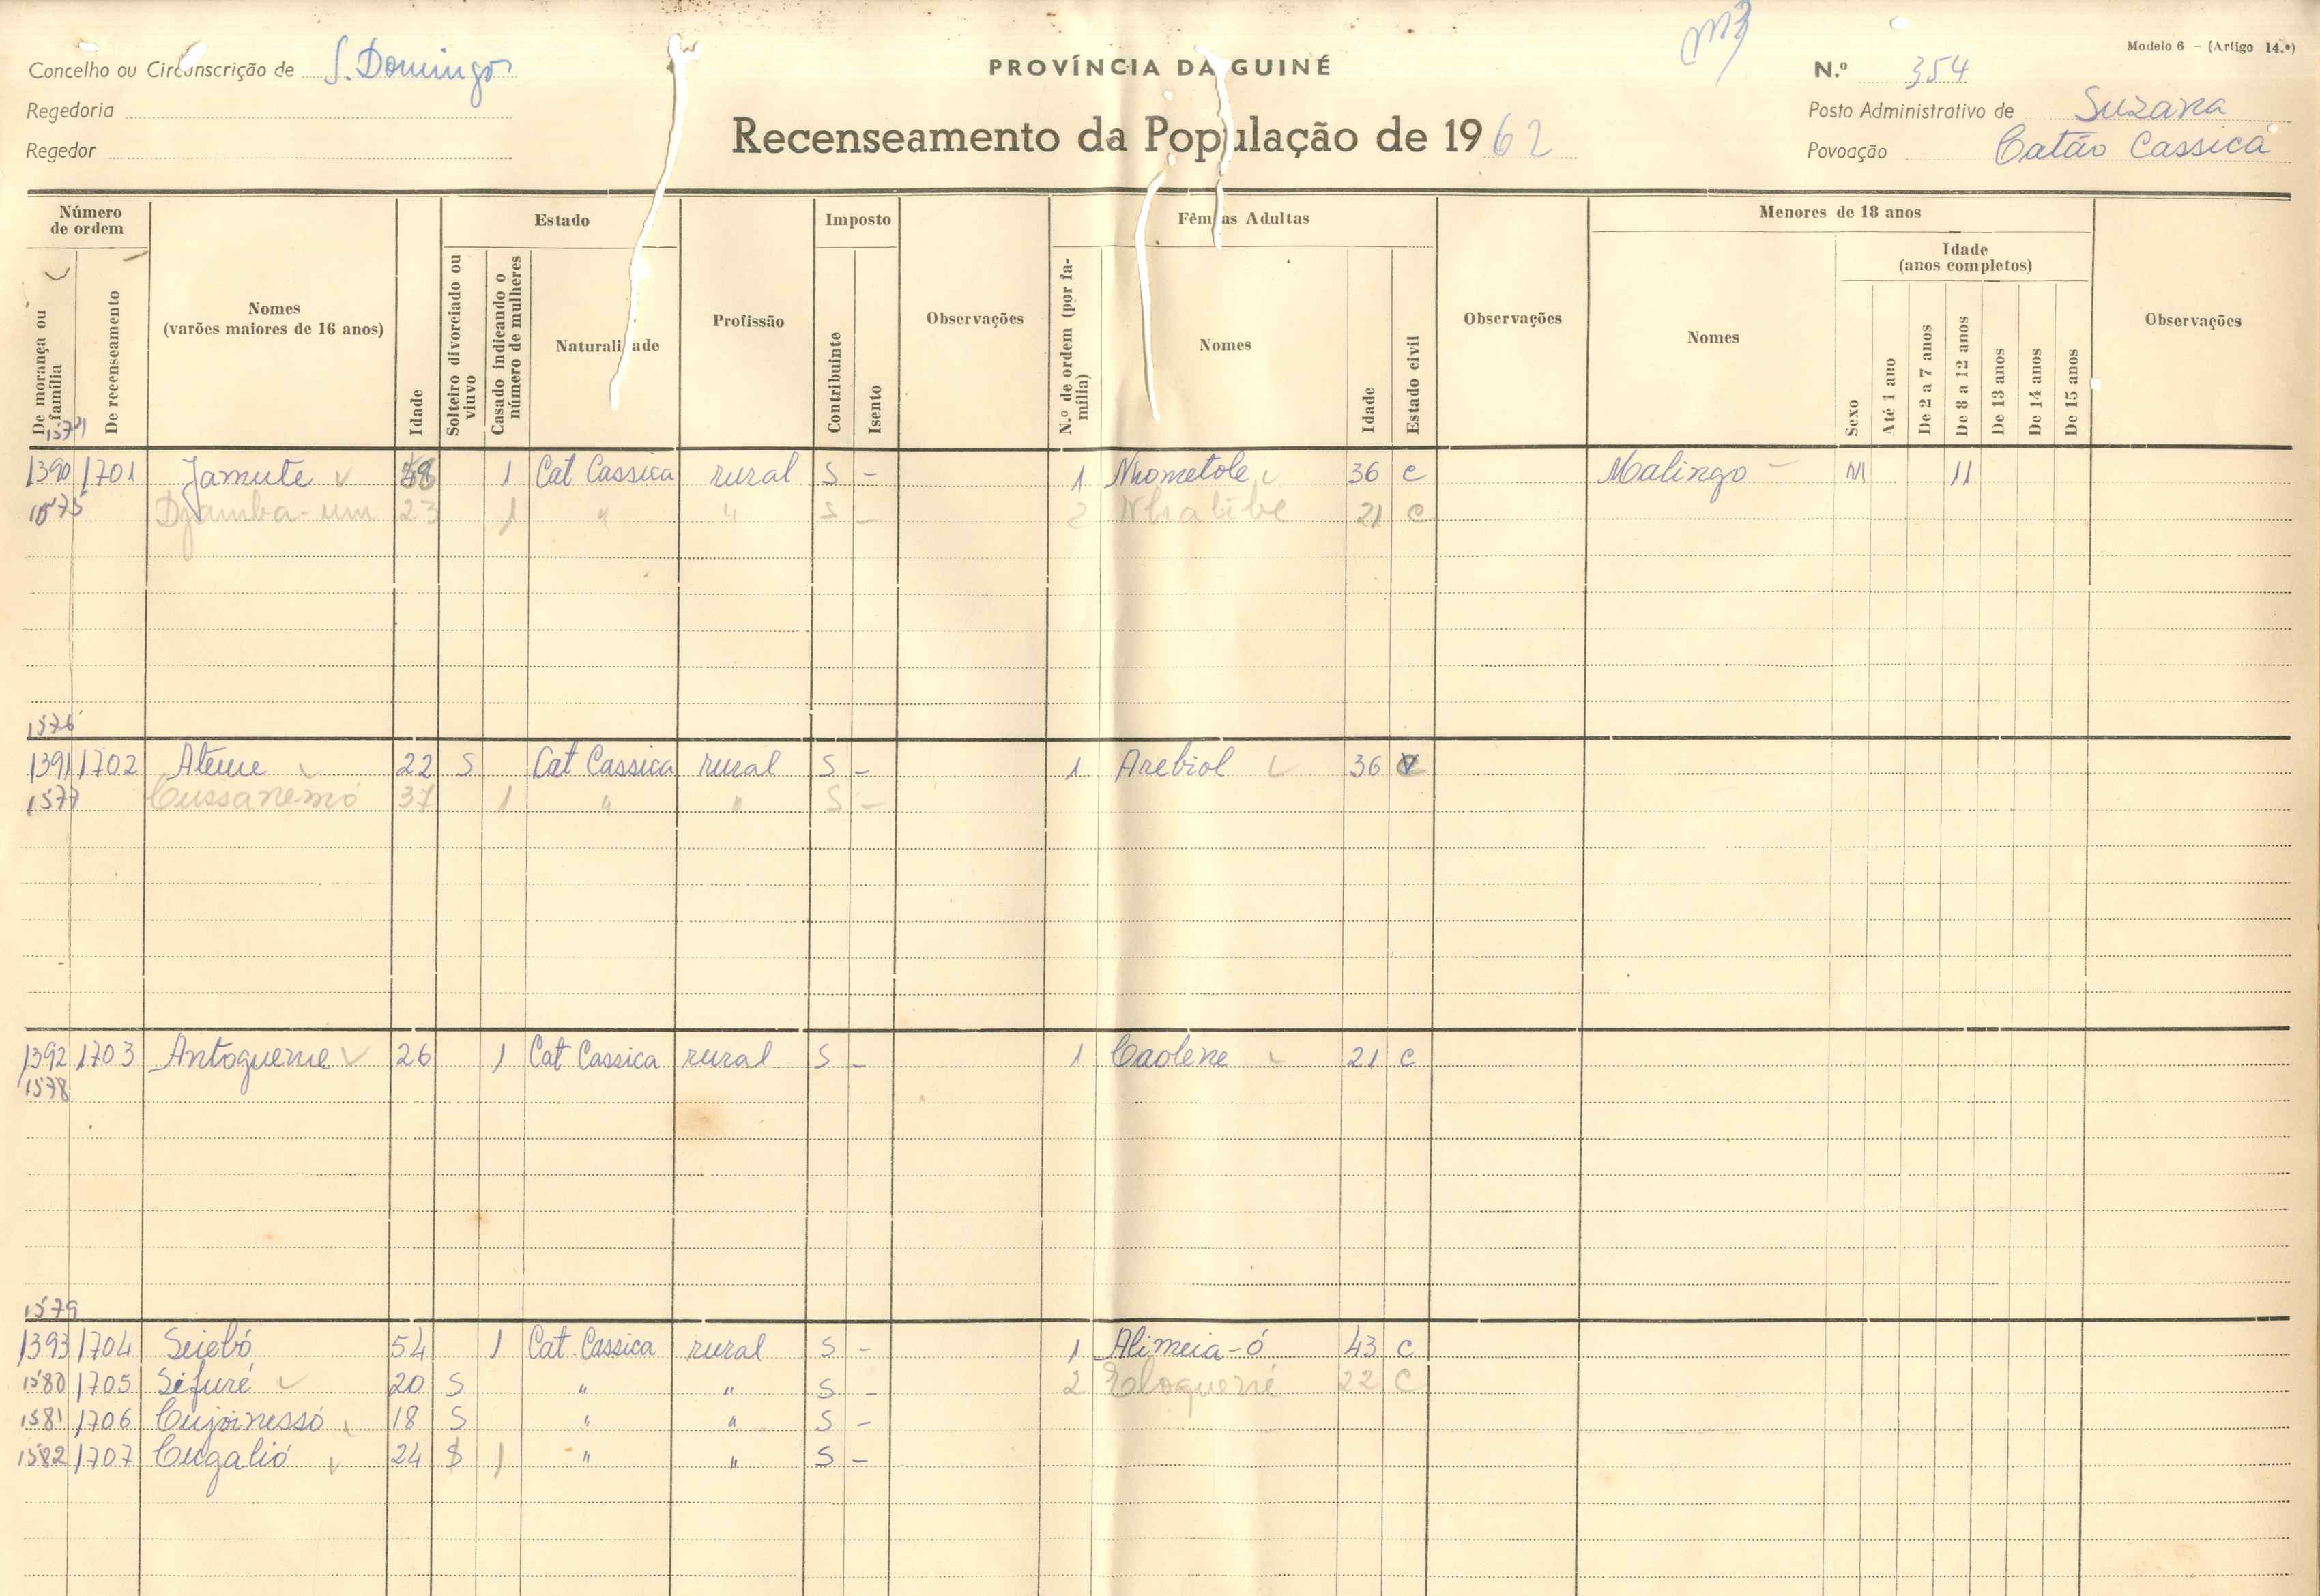 Modelo 6 - (Artigo 14.º)
Concelho ou Circunscrição de S. Domingos
PROVÍNCIA DA GUINÉ
N.º 354
Regedoria
Posto Administrativo de Suzana
Regedor
Recenseamento da População de 1962
Povoação Catão Cassica
Número de ordem
Estado
Imposto
Fêmeas Adultas
Menores de 18 anos
Idade (anos completos)
De morança ou família
De recenseamento
Nomes (varões maiores de 16 anos)
Idade
Solteiro divorciado ou viuvo
Casado indicando o número de mulheres
Naturalidade
Profissão
Contribuinte
Isento
Observações
N.º de ordem (por família)
Nomes
Idade
Estado civil
Observações
Nomes
Sexo
Até 1 ano
De 2 a 7 anos
De 8 a 12 anos
De 13 anos
De 14 anos
De 15 anos
Observações
1574
1390 1701 Jamute 1 Cat Cassica rural S - 1 Nhometole 36 c Malingo - M 11
1575 Djamba-um 23 1 " " S - 2 Nhalibe 21 c
1576
1391 1702 Ateme 22 S Cat Cassica rural S - 1 Arebiol 36
1577 Cussanemó 37 1 " " S -
1392 1703 Antogueme 26 1 Cat Cassica rural S - 1 Caolene 21 c
1578
1579
1393 1704 Seiebó 54 1 Cat. Cassica rural S - 1 Alimeia-ó 43 c
1580 1705 Sifuré 20 S " " S - 2 22 C
1581 1706 Cujoinessó 18 S " " S -
1582 1707 Cugalió 24 S 1 " " S -